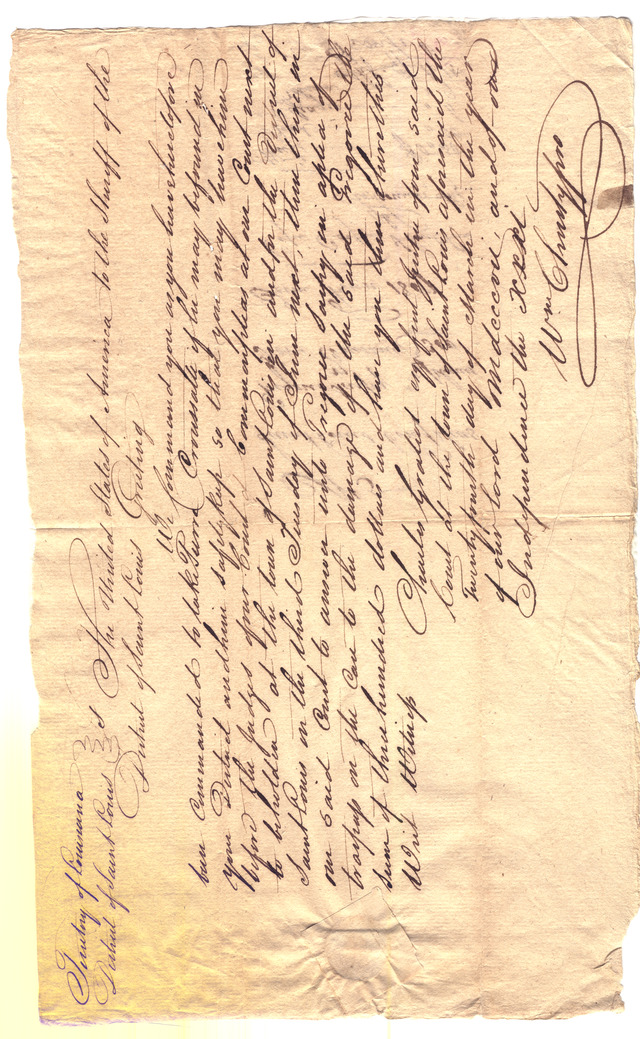 Territory of Louisiana
District of Saint Louis ss The United States of America to the Sheriff of the
District of Saint Louis Greeting
We Command you as you have heretofore
been Commanded to take Pierre if he may be found in
your District and him safely keep so that you may have him
before the Judges of our Court of Commonpleas at our Court next
to be holden at the town of Saint Louis in and for the District of
Saint Louis on the third Tuesday of June next, then there in
our said Court to answer unto Gregoire Sarpy in a plea of
trespass on the Case to the damage of the said Gregoire the
sum of three hundred dollars and have you then there this
Writ Witness Charles Gratiot esq first Justice of our said
Court at the town of Saint Louis aforesaid the
Twenty day of March in the year
of our lord Mdcccvii and of our
Independence the xxxi
Wm Christy pro